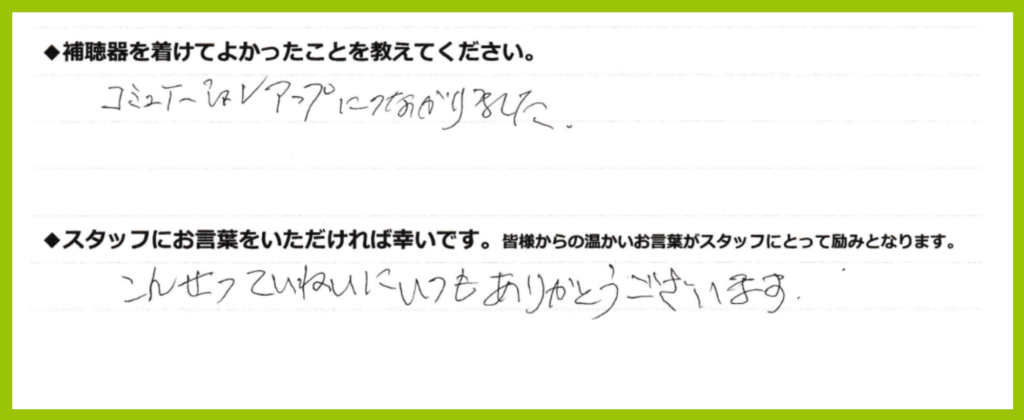 ◆補聴器を着けてよかったことを教えてください。
コミュニケーションアップにつながりました.
◆スタッフにお言葉をいただければ幸いです。皆様からの温かいお言葉がスタッフにとって励みとなります。
こんせつていねいにいつもありがとうございます.